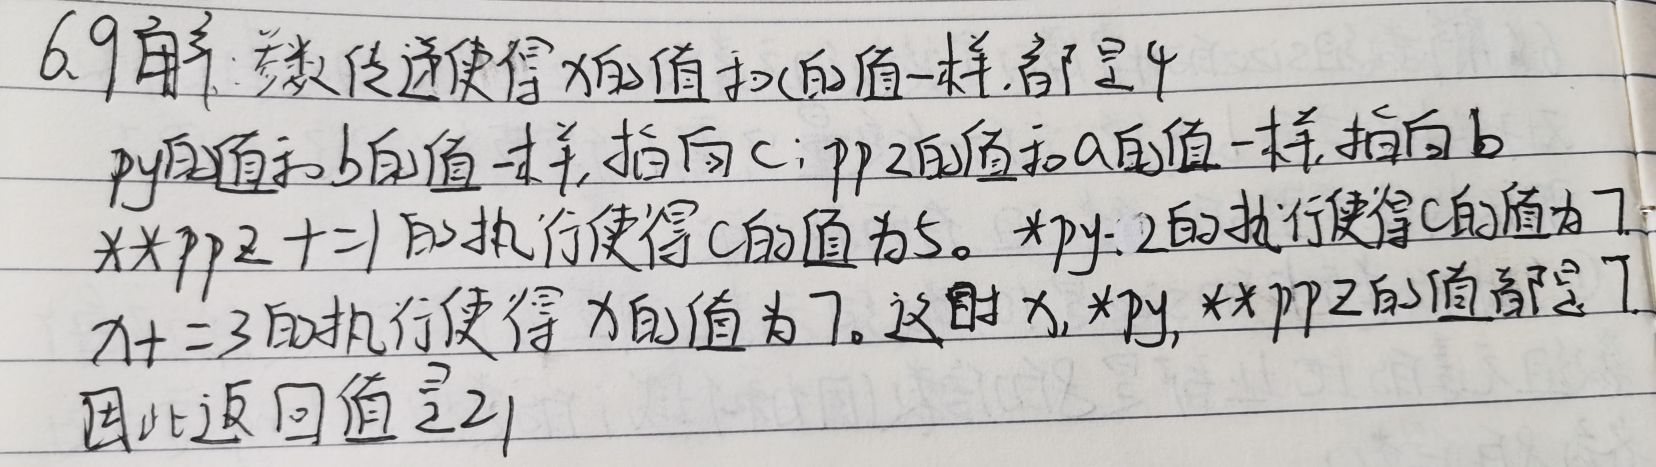 6.9解:参数传递使得x的值和c的值一样.都是4
py的值和b的值一样,指向c;ppz的值和a的值一样,指向b
**ppz+=1的执行使得c的值为5。*py:2的执行使得c的值为7.
x+=3的执行使得x的值为7。这时x,*py,**ppz的值都是7.
因此返回值是21